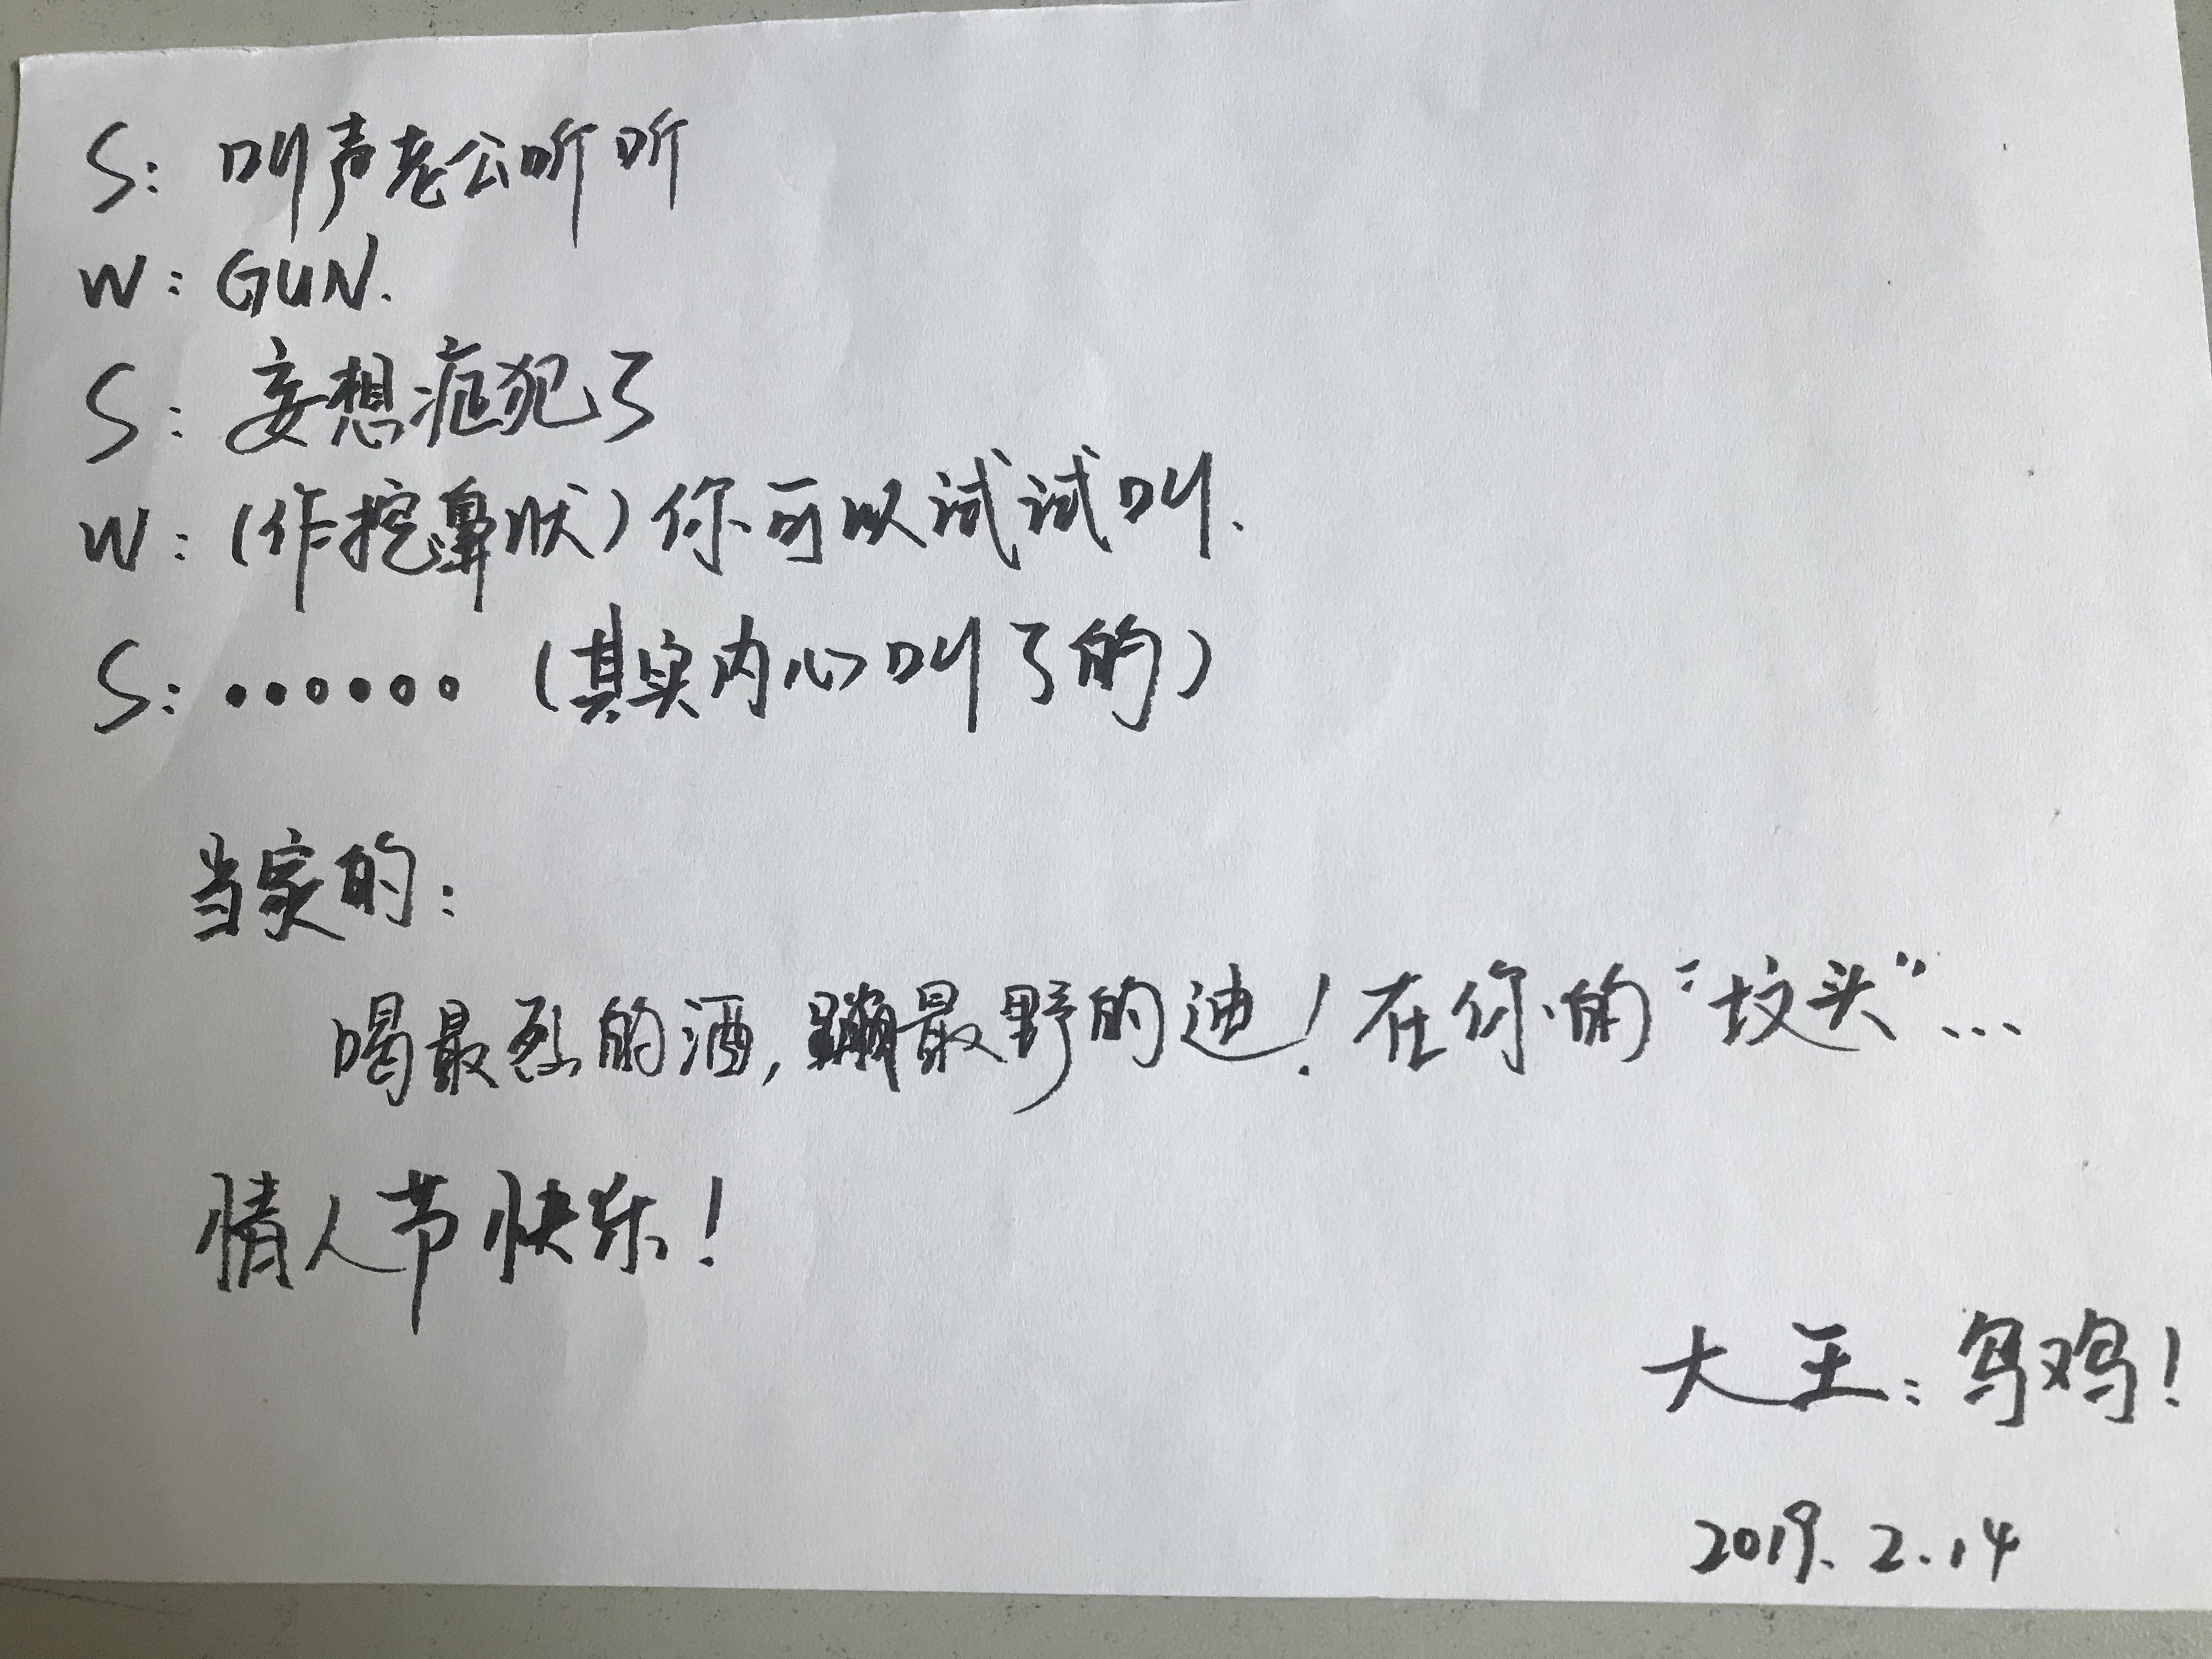 S: 叫声老公听听
W: GUN.
S: 妄想症犯了
W: (作挖鼻状) 你可以试试叫.
S: ...... (其实内心叫了的)
当家的:
喝最烈的酒, 蹦最野的迪! 在你的“坟头”...
情人节快乐!
大王: 乌鸡!
2019. 2. 14